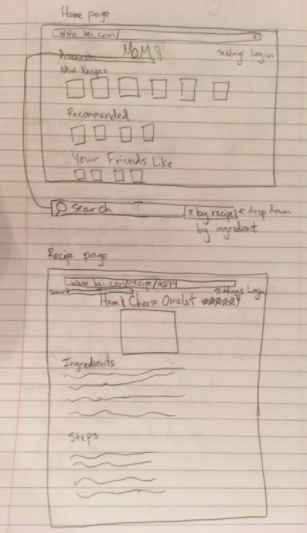 Home page
www. .com/
search MOM? Settings Login
New Recipes
Recommended
Your Friends Like
Search by recipe ← drop down
by ingredient
Recipe page
www. .com/recipe/4279
Search Settings Login
Ham & Cheese Omelet
Ingredients
Steps